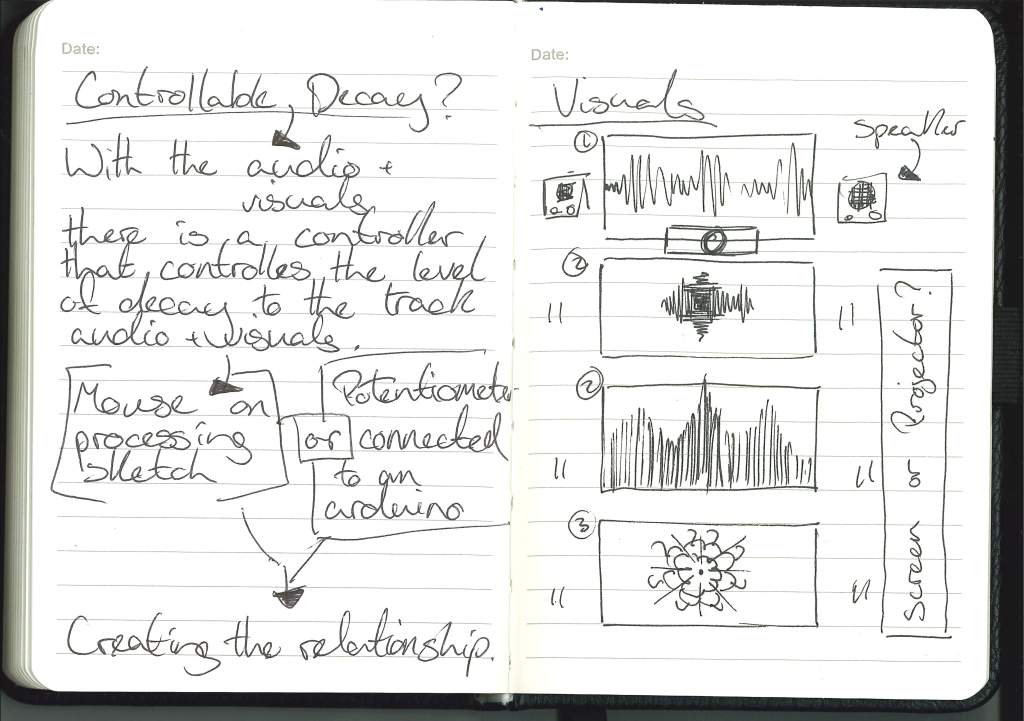 Date:
Controllable Decay?
With the audio +
visuals
there is a controller
that controlles the level
of decay to the track
audio + visuals.
Mouse on
processing
sketch
or
Potentiometer
connected
to an
arduino
Creating the relationship.
Date:
Visuals
1
speaker
2
"
"
2
"
"
3
"
"
Screen or Projector?